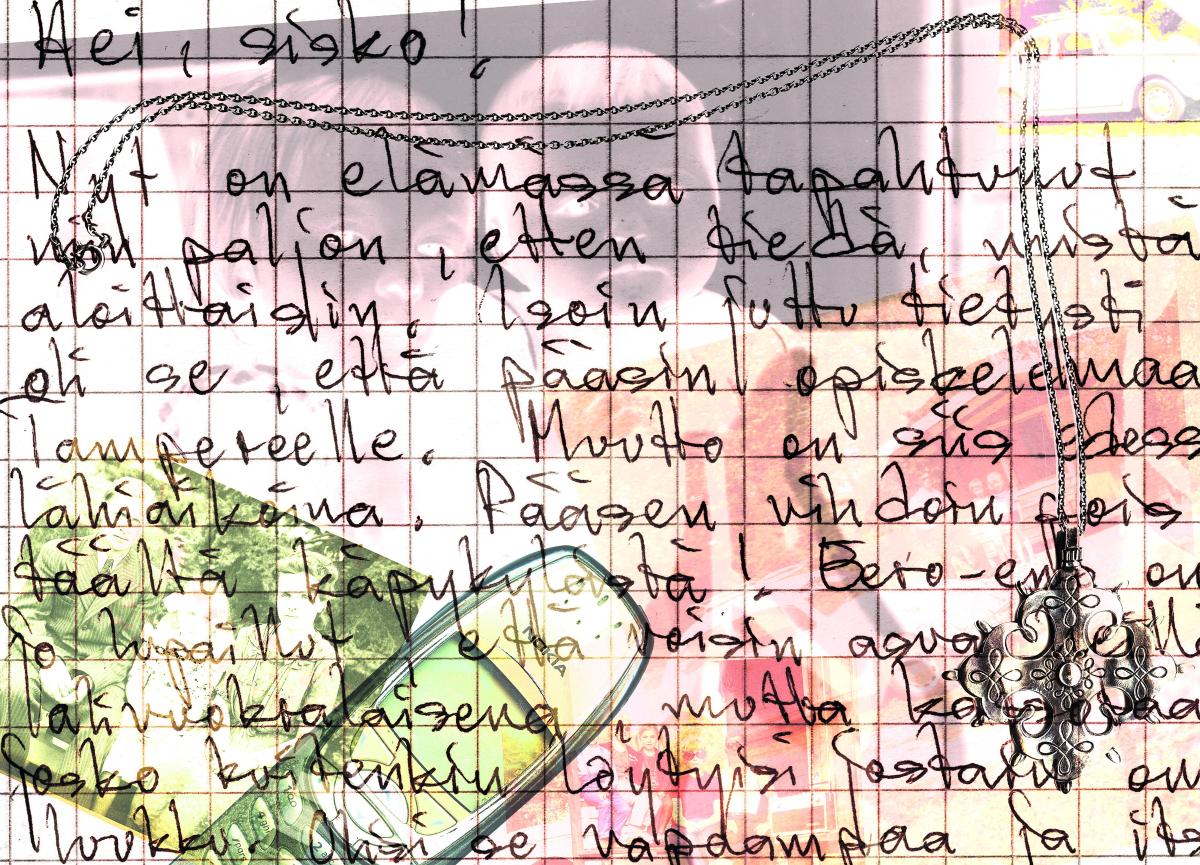 Hei, sisko!
Nyt on elämässä tapahtunut
niin paljon, etten tiedä, mistä
aloittaisin. Isoin juttu tietysti
oli se, että pääsin opiskelemaa
Tampereelle. Muutto on siis edess
lähiaikoina. Pääsen vihdoin pois
täältä käpykylästä! Eero-eno on
jo lupaillut, että voisin asua
alivuokralaisena, mutta katsotaa
josko kuitenkin löytyisi jostain om
luukku. Olisi se vapaampaa ja its
NOKIA